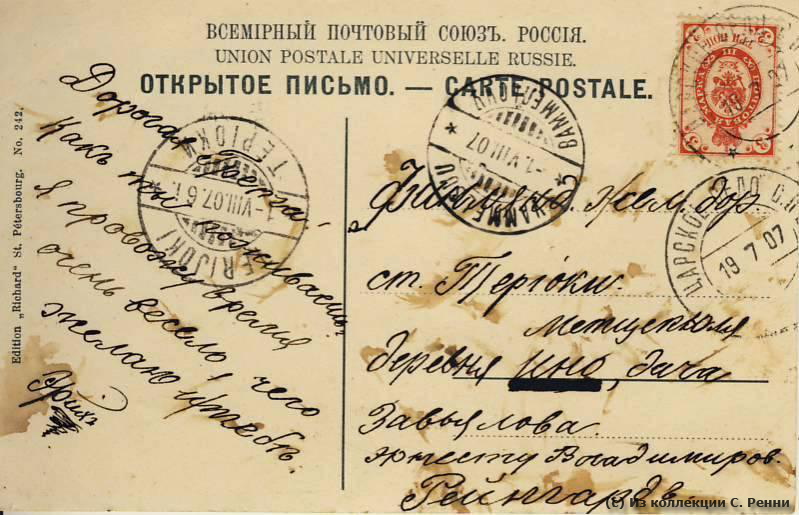 ВСЕМІРНЫЙ ПОЧТОВЫЙ СОЮЗЪ. РОССІЯ.
UNION POSTALE UNIVERSELLE RUSSIE.
ОТКРЫТОЕ ПИСЬМО. — CARTE POSTALE.
Edition „Richard" St. Pétersbourg. No. 242.
Дорогая
какъ ты поживаешь.
я провожу время
очень весело! чего
желаю и тебѣ.
Эрихъ
Финлянд. жел. дор.
ст. Теріоки.
деревня Ино, дача
Завьялова.
Эрнесту Владимиров.
Рейнгардъ.
TERIJOKI
ТЕРІОКИ
1-VIII.07. 6
VAMMELJOKI
-1.VIII.07
ЦАРСКОЕ СЕЛО
19 7 07
ПОЧТОВАЯ МАРКА
ТРИ КОП.
3
(c) Из коллекции С. Ренни